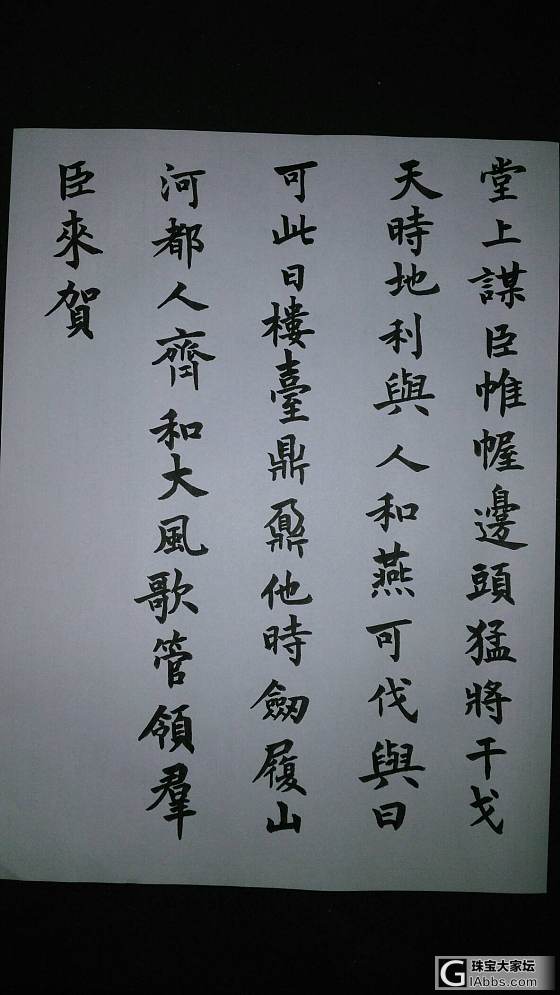 堂上謀臣帷幄邊頭猛將干戈
天時地利與人和燕可伐與曰
可此日樓臺鼎鼐他時劔履山
河都人齊和大風歌管領羣
臣來賀
珠宝大家坛
GIAbbs.com